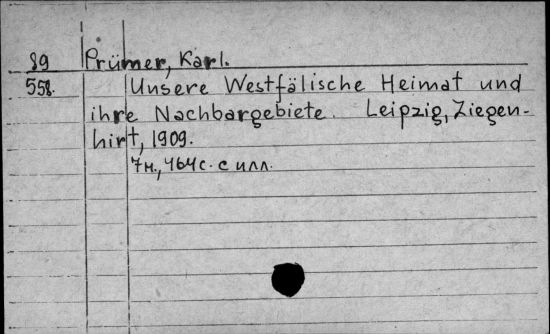 89 Prümer, Karl.
558. Unsere Westfälische Heimat und
ihre Nachbargebiete. Leipzig, Ziegen-
hirt, 1909.
7н., 464с. с илл.